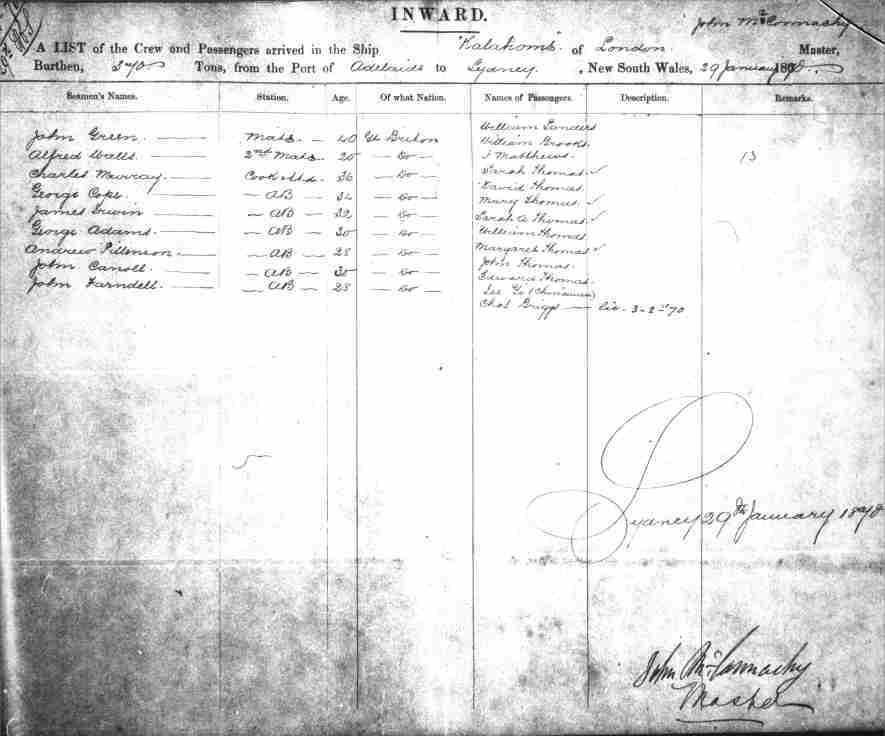 INWARD.
John McConnachy
A LIST of the Crew and Passengers arrived in the Ship "Kalahome" of London Master,
Burthen, Tons, from the Port of Adelaide to Sydney, New South Wales, 29 January 1870
Seamen's Names. Station. Age. Of what Nation. Names of Passengers. Description. Remarks.
William Landers
John Green Mate 40 Gt Britain William Brooks
Alfred Walls 2nd Mate 25 Do J Matthews 13
Charles Murray Cook & Std 36 Do Sarah Thomas
David Thomas
George Coke AB 32 Do Mary Thomas
James Irwin AB 32 Do Sarah A Thomas
George Adams AB 30 Do William Thomas
Andrew AB 28 Do Margaret Thomas
John Carroll AB 30 Do John Thomas
John Farndell AB 28 Do Edward Thomas
See Gi (Chinaman)
Chas Briggs 3-2-70
Sydney 29th January 1870
John McConnachy
Master